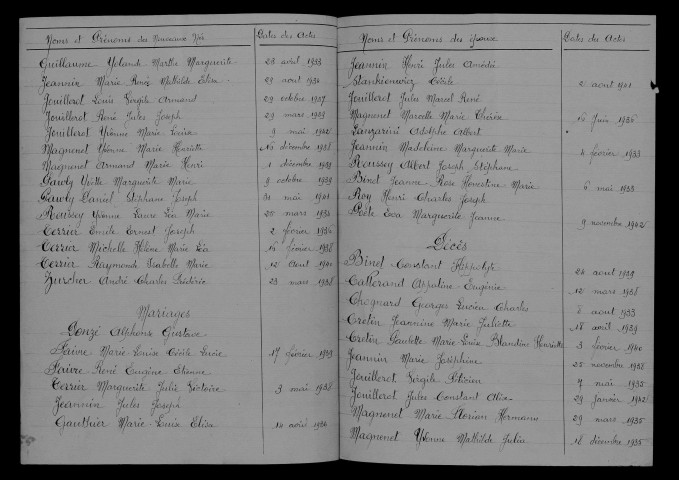 Noms et Prénoms des Nouveaux Nés Dates des Actes
Guillaume Yolande Marthe Marguerite 28 avril 1933
Jeannin Marie Renée Mathilde Elise 29 août 1934
Jouillerot Louis Sergile Armand 29 octobre 1937
Jouillerot René Jules Joseph 29 mars 1939
Jouillerot Yvonne Marie Louise 9 mai 1942
Magnenet Yvonne Marie Henriette 16 décembre 1938
Magnenet Armand Marie Henri 1 décembre 1939
Gawly Yvette Marguerite Marie 9 octobre 1939
Gawly Daniel Stéphane Joseph 31 mai 1941
Roussey Yvonne Laure Léa Marie 20 mars 1934
Cerrier Emile Ernest Joseph 2 février 1936
Cerrier Michelle Hélène Marie 16 février 1938
Cerrier Raymonde Isabelle Marie 12 Août 1940
Zurcher André Charles Frédéric 23 mars 1938
Mariages
Alphons Gustave
Faivre Marie Louise Cécile Lucie 17 février 1939
Faivre René Eugène Etienne
Cerrier Marguerite Julie Victoire 3 mai 1938
Jeannin Jules Joseph
Gauthier Marie-Louise Elisa 14 août 1936
Noms et Prénoms des époux Dates des Actes
Jeannin Henri Jules Amédée
Stankienwicz Cécile 2 août 1941
Jouillerot Jules Marcel René
Magnenet Marcelle Marie Thérèse 16 Juin 1936
Lanzarini Adolphe Albert
Jeannin Madeleine Marguerite Marie 4 février 1933
Roussey Albert Joseph Stéphane
Binet Jeanne-Rose Marie 6 mai 1933
Roy Henri Charles Joseph
Eva Marguerite Jeanne 9 novembre 1942
Décès
Binet Constant Hippolyte 24 août 1939
Eugénie 12 mars 1938
Chognard Georges Lucien Charles 8 août 1933
Cretin Jeannine Marie Juliette 18 avril 1939
Cretin Claudette Marie Louise Blandine Henriette 3 février 1940
Jeannin Marie Joséphine 25 novembre 1938
Jouillerot 7 mai 1935
Jouillerot Jules Constant 29 janvier 1942
Magnenet Marie Florian Hermann 29 mars 1935
Magnenet Yvonne Mathilde Julia 18 décembre 1935